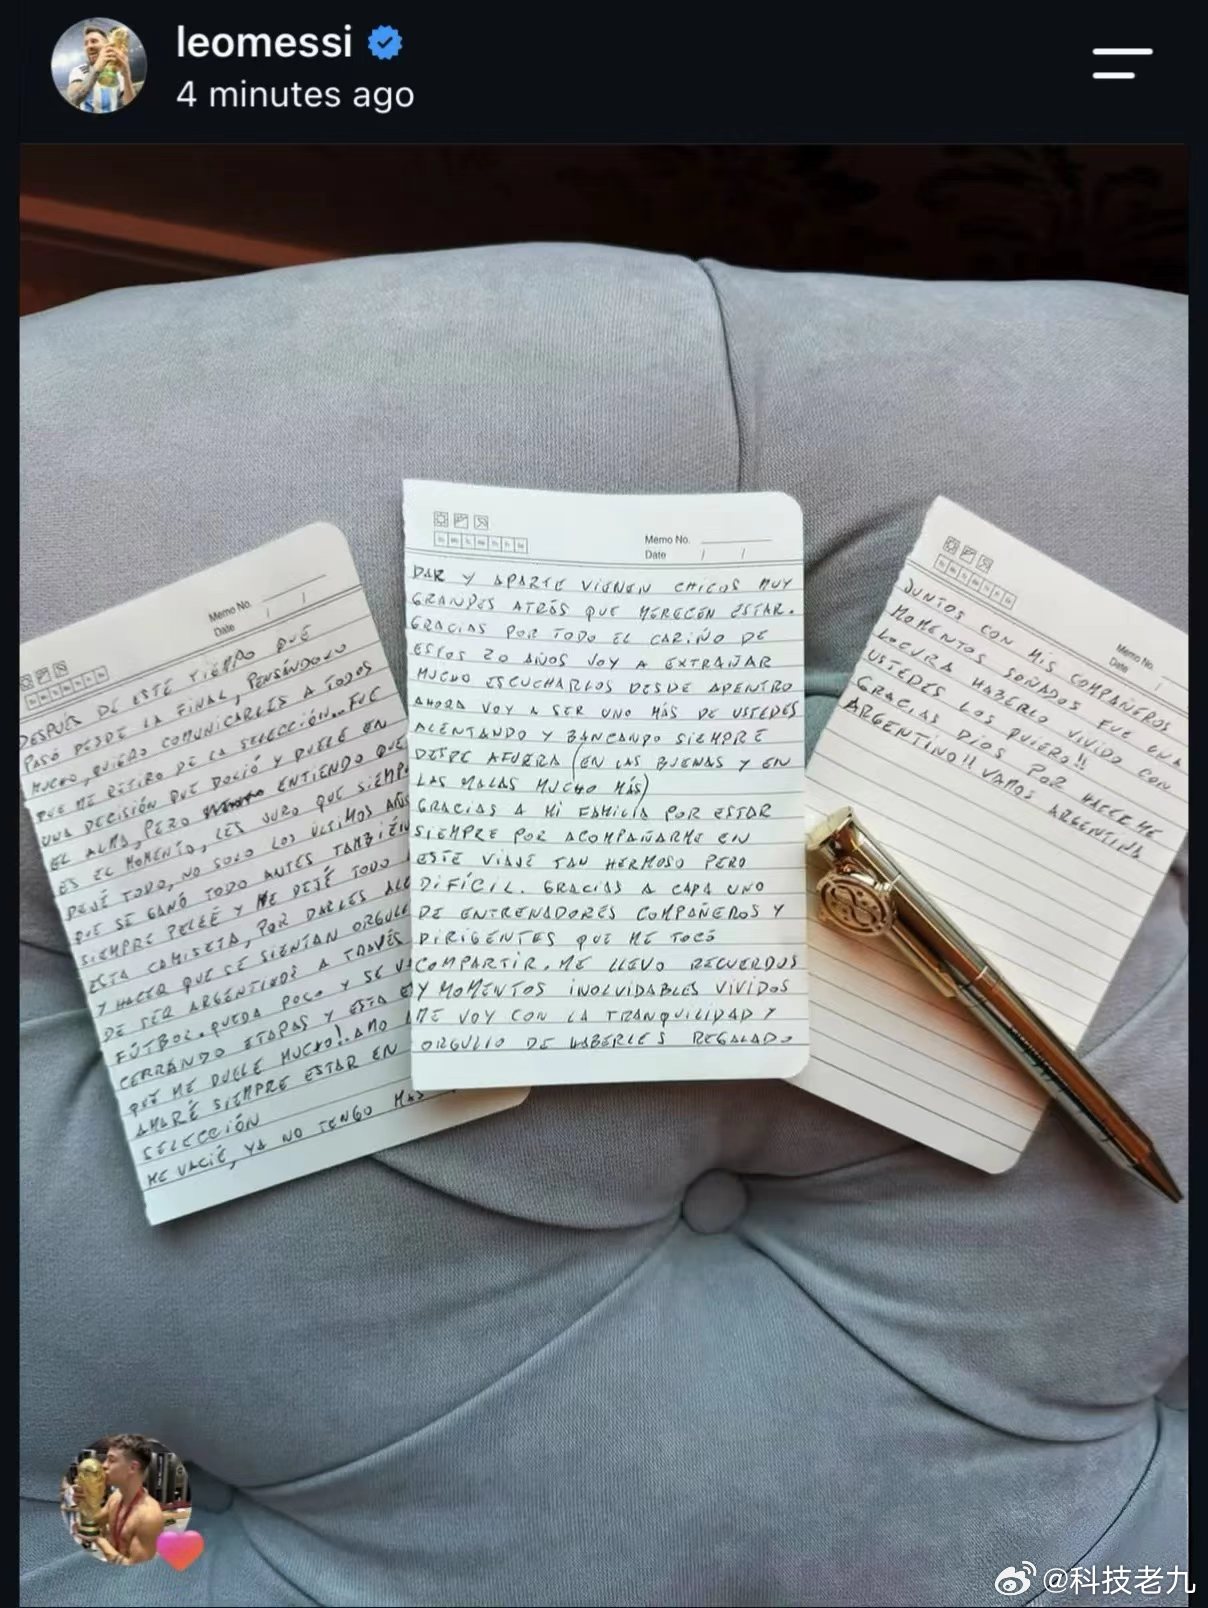 leomessi
4 minutes ago
Memo No.
Date / /
DESPUÉS DE ESTE TIEMPO QUE
PASÓ DESDE LA FINAL, PENSÁNDOLO
MUCHO, QUIERO COMUNICARLES A TODOS
QUE ME RETIRO DE LA SELECCIÓN... FUE
UNA DECISIÓN QUE DOLIÓ Y DUELE EN
EL ALMA, PERO ENTIENDO QUE
ES EL MOMENTO, LES JURO QUE SIEMP
DEJÉ TODO, NO SOLO LOS ÚLTIMOS AÑOS
QUE SE GANÓ TODO ANTES TAMBIÉN
SIEMPRE PELEÉ Y ME DEJÉ TODO
ESTA CAMISETA, POR DARLES ALE
Y HACER QUE SE SIENTAN ORGULL
DE SER ARGENTINOS A TRAVÉS
FÚTBOL. QUEDA POCO Y SE VA
CERRANDO ETAPAS Y ESTA E
QUE ME DUELE MUCHO!. AMO
AMARÉ SIEMPRE ESTAR EN
SELECCIÓN
ME VACIÉ, YA NO TENGO MÁS
Memo No.
Date / /
DAR Y APARTE VIENEN CHICOS MUY
GRANDES ATRÁS QUE MERECEN ESTAR.
GRACIAS POR TODO EL CARIÑO DE
ESTOS 20 AÑOS VOY A EXTRAÑAR
MUCHO ESCUCHARLOS DESDE ADENTRO
AHORA VOY A SER UNO MÁS DE USTEDES
ALENTANDO Y BANCANDO SIEMPRE
DESDE AFUERA (EN LAS BUENAS Y EN
LAS MALAS MUCHO MÁS)
GRACIAS A MI FAMILIA POR ESTAR
SIEMPRE POR ACOMPAÑARME EN
ESTE VIAJE TAN HERMOSO PERO
DIFÍCIL. GRACIAS A CADA UNO
DE ENTRENADORES COMPAÑEROS Y
DIRIGENTES QUE ME TOCÓ
COMPARTIR. ME LLEVO RECUERDOS
Y MOMENTOS INOLVIDABLES VIVIDOS
ME VOY CON LA TRANQUILIDAD Y
ORGULLO DE HABERLES REGALADO
Memo No.
Date /
JUNTOS CON MIS COMPAÑEROS
MOMENTOS SOÑADOS FUE UNA
LOCURA HABERLO VIVIDO CON
USTEDES LOS QUIERO!!
GRACIAS DIOS POR HACERME
ARGENTINO!! VAMOS ARGENTINA
@科技老九